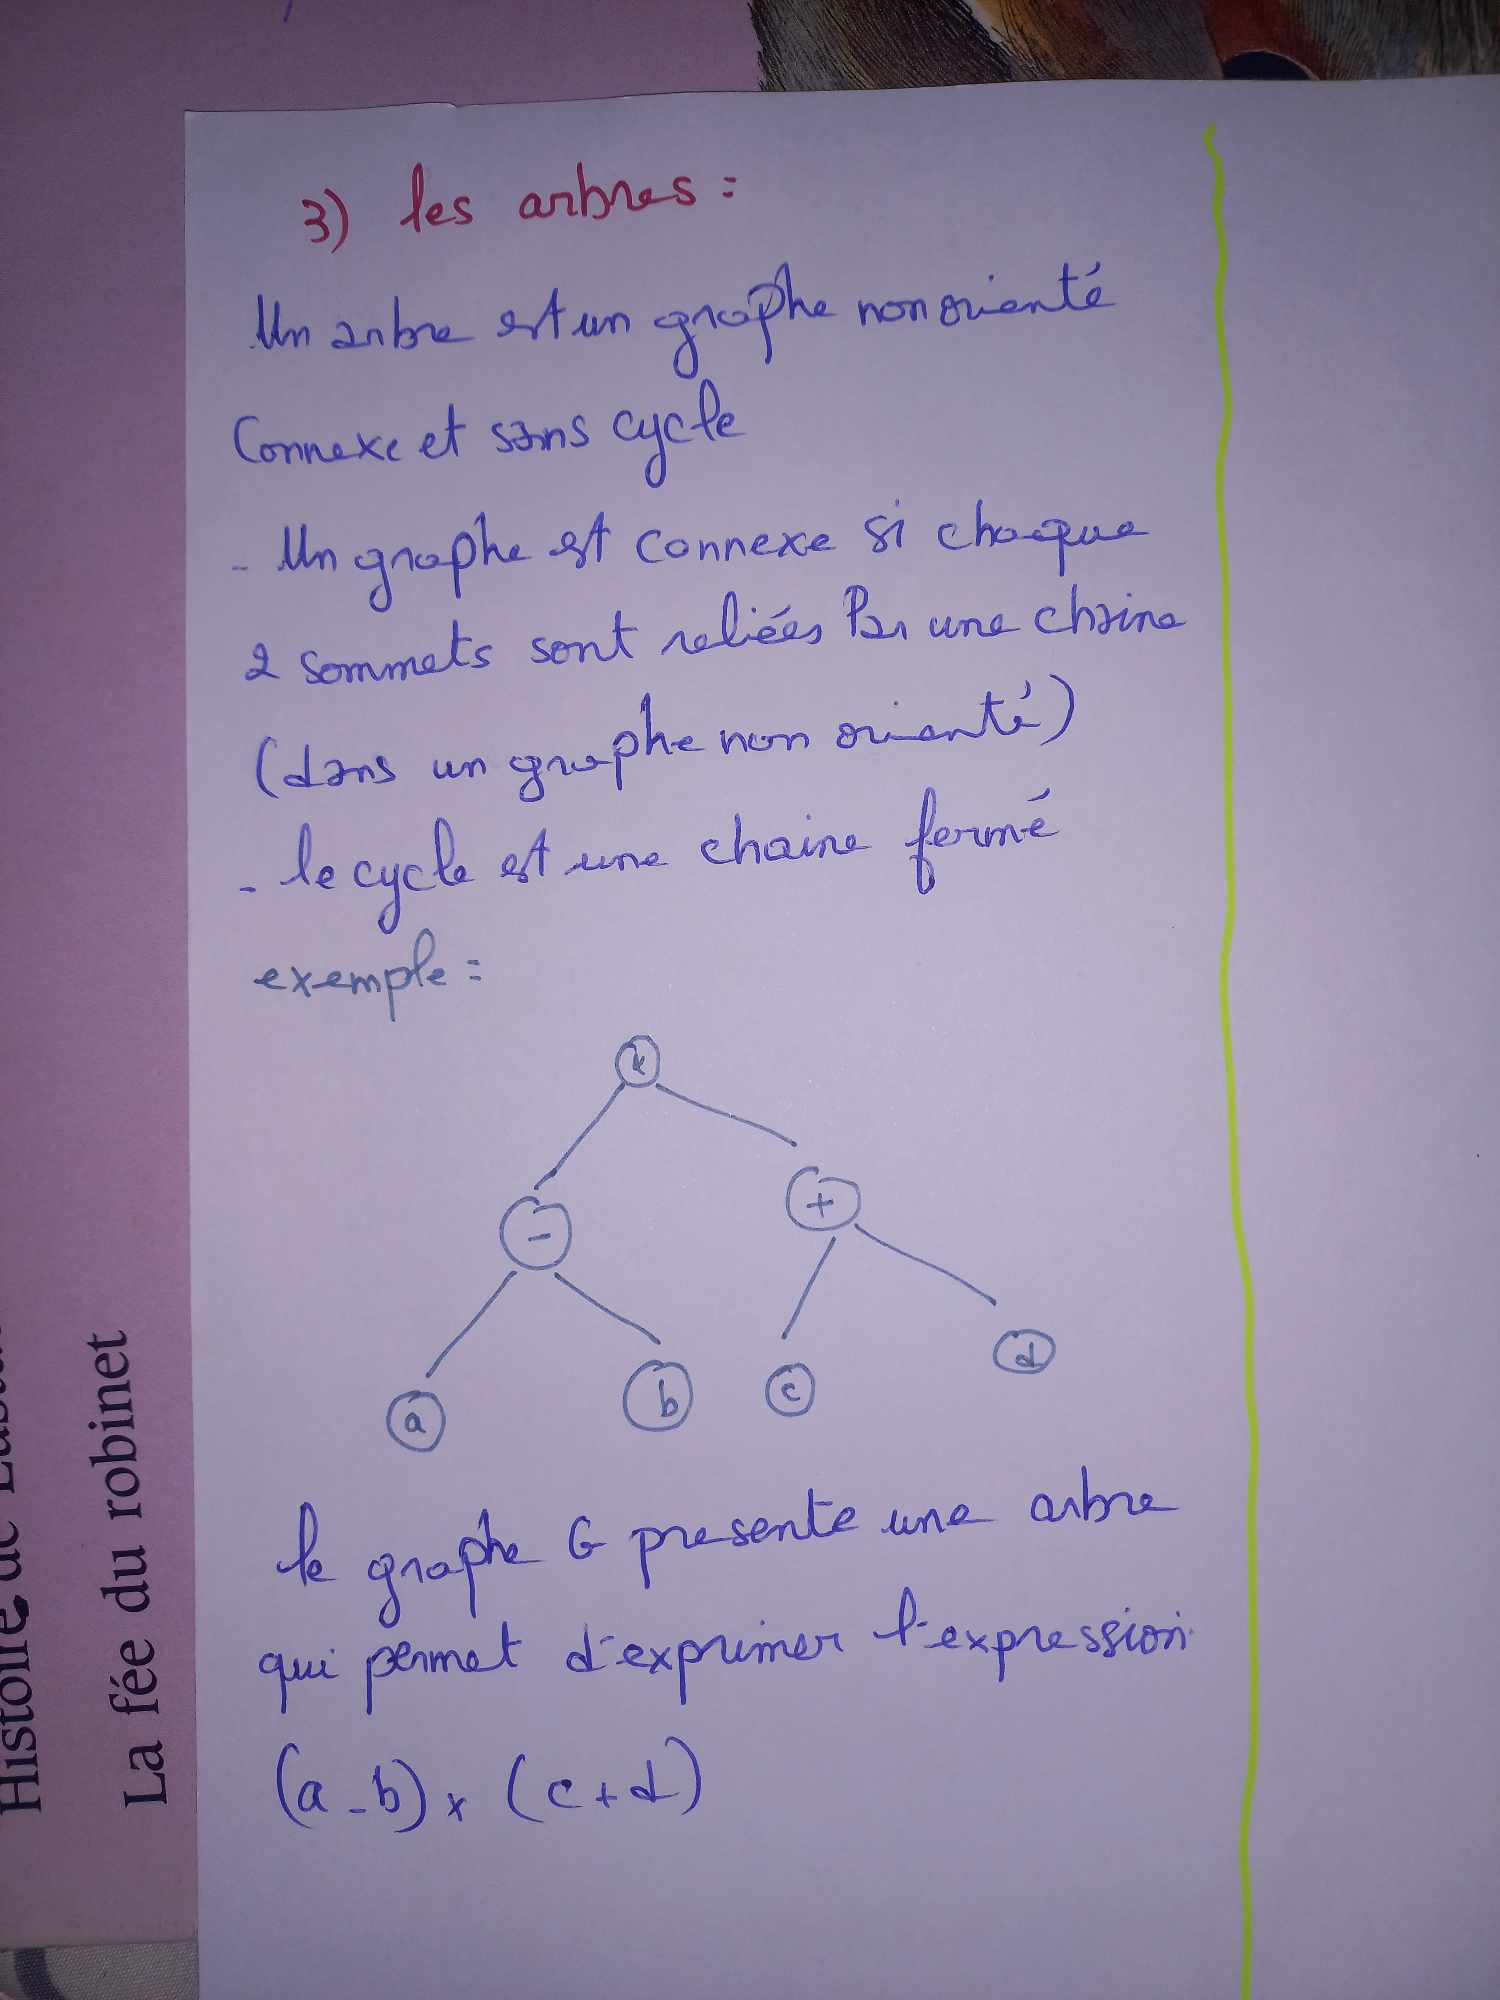 3) les arbres :
Un arbre est un graphe non orienté
Connexe et sans cycle
- Un graphe est connexe si chaque
2 sommets sont reliées Par une chaine
(dans un graphe non orienté)
- le cycle est une chaine fermé
exemple :
*
- +
a b c d
le graphe G presente une arbre
qui permet d'exprimer l'expression
(a-b) x (c+d)
La fée du robinet
Histoire de